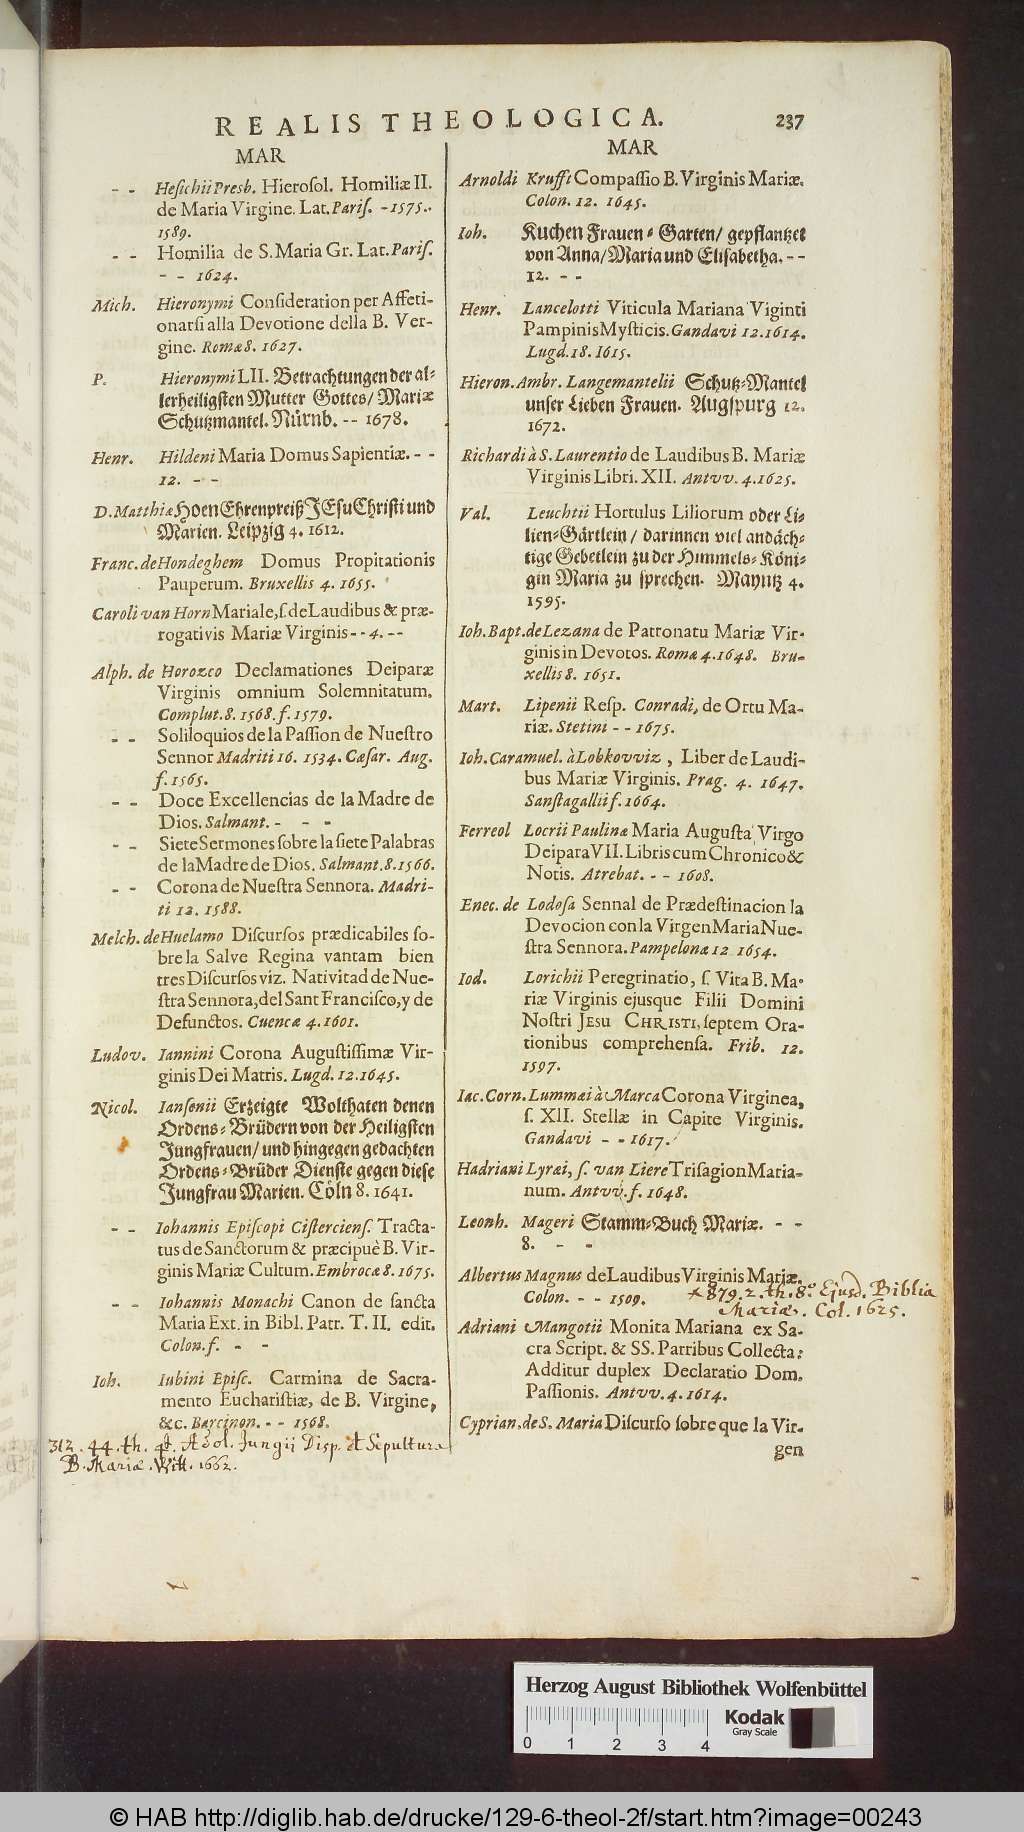 REALIS THEOLOGICA. 237
MAR
- - Heſichii Presb. Hieroſol. Homiliæ II.
de Maria Virgine. Lat. Pariſ. - 1575.
1589.
- - Homilia de S. Maria Gr. Lat. Pariſ.
- - 1624.
Mich. Hieronymi Conſideration per Affeti-
onarſi alla Devotione della B. Ver-
gine. Romæ 8. 1627.
P. Hieronymi LII. Betrachtungen der al-
lerheiligſten Mutter Gottes/ Mariæ
Schutzmantel. Nürnb. - - 1678.
Henr. Hildeni Maria Domus Sapientiæ. - -
12. - -
D. Matthiæ Hoen Ehrenpreiß JEſu Chriſti und
Marien. Leipzig 4. 1612.
Franc. de Hondeghem Domus Propitationis
Pauperum. Bruxellis 4. 1655.
Caroli van Horn Mariale, ſ. de Laudibus & præ-
rogativis Mariæ Virginis - - 4. - -
Alph. de Horozco Declamationes Deiparæ
Virginis omnium Solemnitatum.
Complut. 8. 1568. f. 1579.
- - Soliloquios de la Paſſion de Nueſtro
Sennor Madriti 16. 1534. Cæſar. Aug.
f. 1565.
- - Doce Excellencias de la Madre de
Dios. Salmant. - - -
- - Siete Sermones ſobre la ſiete Palabras
de la Madre de Dios. Salmant. 8. 1566.
- - Corona de Nueſtra Sennora. Madri-
ti 12. 1588.
Melch. de Huelamo Diſcurſos prædicabiles ſo-
bre la Salve Regina vantam bien
tres Diſcurſos viz. Nativitad de Nue-
ſtra Sennora, del Sant Franciſco, y de
Defunctos. Cuencæ 4. 1601.
Ludov. Iannini Corona Auguſtiſſimæ Vir-
ginis Dei Matris. Lugd. 12. 1645.
Nicol. Ianſenii Erzeigte Wolthaten denen
Ordens-Brüdern von der Heiligſten
Jungfrauen/ und hingegen gedachten
Ordens-Brüder Dienſte gegen dieſe
Jungfrau Marien. Cöln 8. 1641.
- - Iohannis Epiſcopi Ciſtercienſ. Tracta-
tus de Sanctorum & præcipuè B. Vir-
ginis Mariæ Cultum. Embrocæ 8. 1675.
- - Iohannis Monachi Canon de ſancta
Maria Ext. in Bibl. Patr. T. II. edit.
Colon. f. - -
Ioh. Iubini Epiſc. Carmina de Sacra-
mento Euchariſtiæ, de B. Virgine,
&c. Barcinon. - - 1568.
312. 44. th. 4. Adol. Jungii Disp. de Sepultura
B. Mariæ. Witt. 1662.
MAR
Arnoldi Krufft Compaſſio B. Virginis Mariæ.
Colon. 12. 1645.
Ioh. Kuchen Frauen-Garten/ gepflantzet
von Anna/ Maria und Eliſabetha. - -
12. - -
Henr. Lancelotti Viticula Mariana Viginti
Pampinis Myſticis. Gandavi 12. 1614.
Lugd. 18. 1615.
Hieron. Ambr. Langemantelii Schutz-Mantel
unſer Lieben Frauen. Augſpurg 12.
1672.
Richardi à S. Laurentio de Laudibus B. Mariæ
Virginis Libri. XII. Antvv. 4. 1625.
Val. Leuchtii Hortulus Liliorum oder Li-
lien-Gärtlein/ darinnen viel andäch-
tige Gebetlein zu der Himmels-Köni-
gin Maria zu ſprechen. Mayntz 4.
1595.
Ioh. Bapt. de Lezana de Patronatu Mariæ Vir-
ginis in Devotos. Romæ 4. 1648. Bru-
xellis 8. 1651.
Mart. Lipenii Reſp. Conradi, de Ortu Ma-
riæ. Stetini - - 1675.
Ioh. Caramuel. à Lobkovviz, Liber de Laudi-
bus Mariæ Virginis. Prag. 4. 1647.
Sanſtagallii f. 1664.
Ferreol Locrii Paulinæ Maria Auguſta Virgo
Deipara VII. Libris cum Chronico &
Notis. Atrebat. - - 1608.
Enec. de Lodoſa Sennal de Prædeſtinacion la
Devocion con la Virgen Maria Nue-
ſtra Sennora. Pampelonæ 12 1654.
Iod. Lorichii Peregrinatio, ſ. Vita B. Ma-
riæ Virginis ejusque Filii Domini
Noſtri JESU CHRISTI, ſeptem Ora-
tionibus comprehenſa. Frib. 12.
1597.
Iac. Corn. Lummæi à Marca Corona Virginea,
ſ. XII. Stellæ in Capite Virginis.
Gandavi - - 1617.
Hadriani Lyræi, ſ. van Liere Triſagion Maria-
num. Antvv. f. 1648.
Leonh. Mageri Stamm-Buch Mariæ. - -
8. - -
Albertus Magnus de Laudibus Virginis Mariæ.
Colon. - - 1509. * 879. 2. th. 8.° Ejusd. Biblia
Mariæ. Col. 1625.
Adriani Mangotii Monita Mariana ex Sa-
cra Script. & SS. Patribus Collecta:
Additur duplex Declaratio Dom.
Paſſionis. Antvv. 4. 1614.
Cyprian. de S. Maria Diſcurſo ſobre que la Vir-
gen
Herzog August Bibliothek Wolfenbüttel
Kodak
Gray Scale
0 1 2 3 4
© HAB http://diglib.hab.de/drucke/129-6-theol-2f/start.htm?image=00243